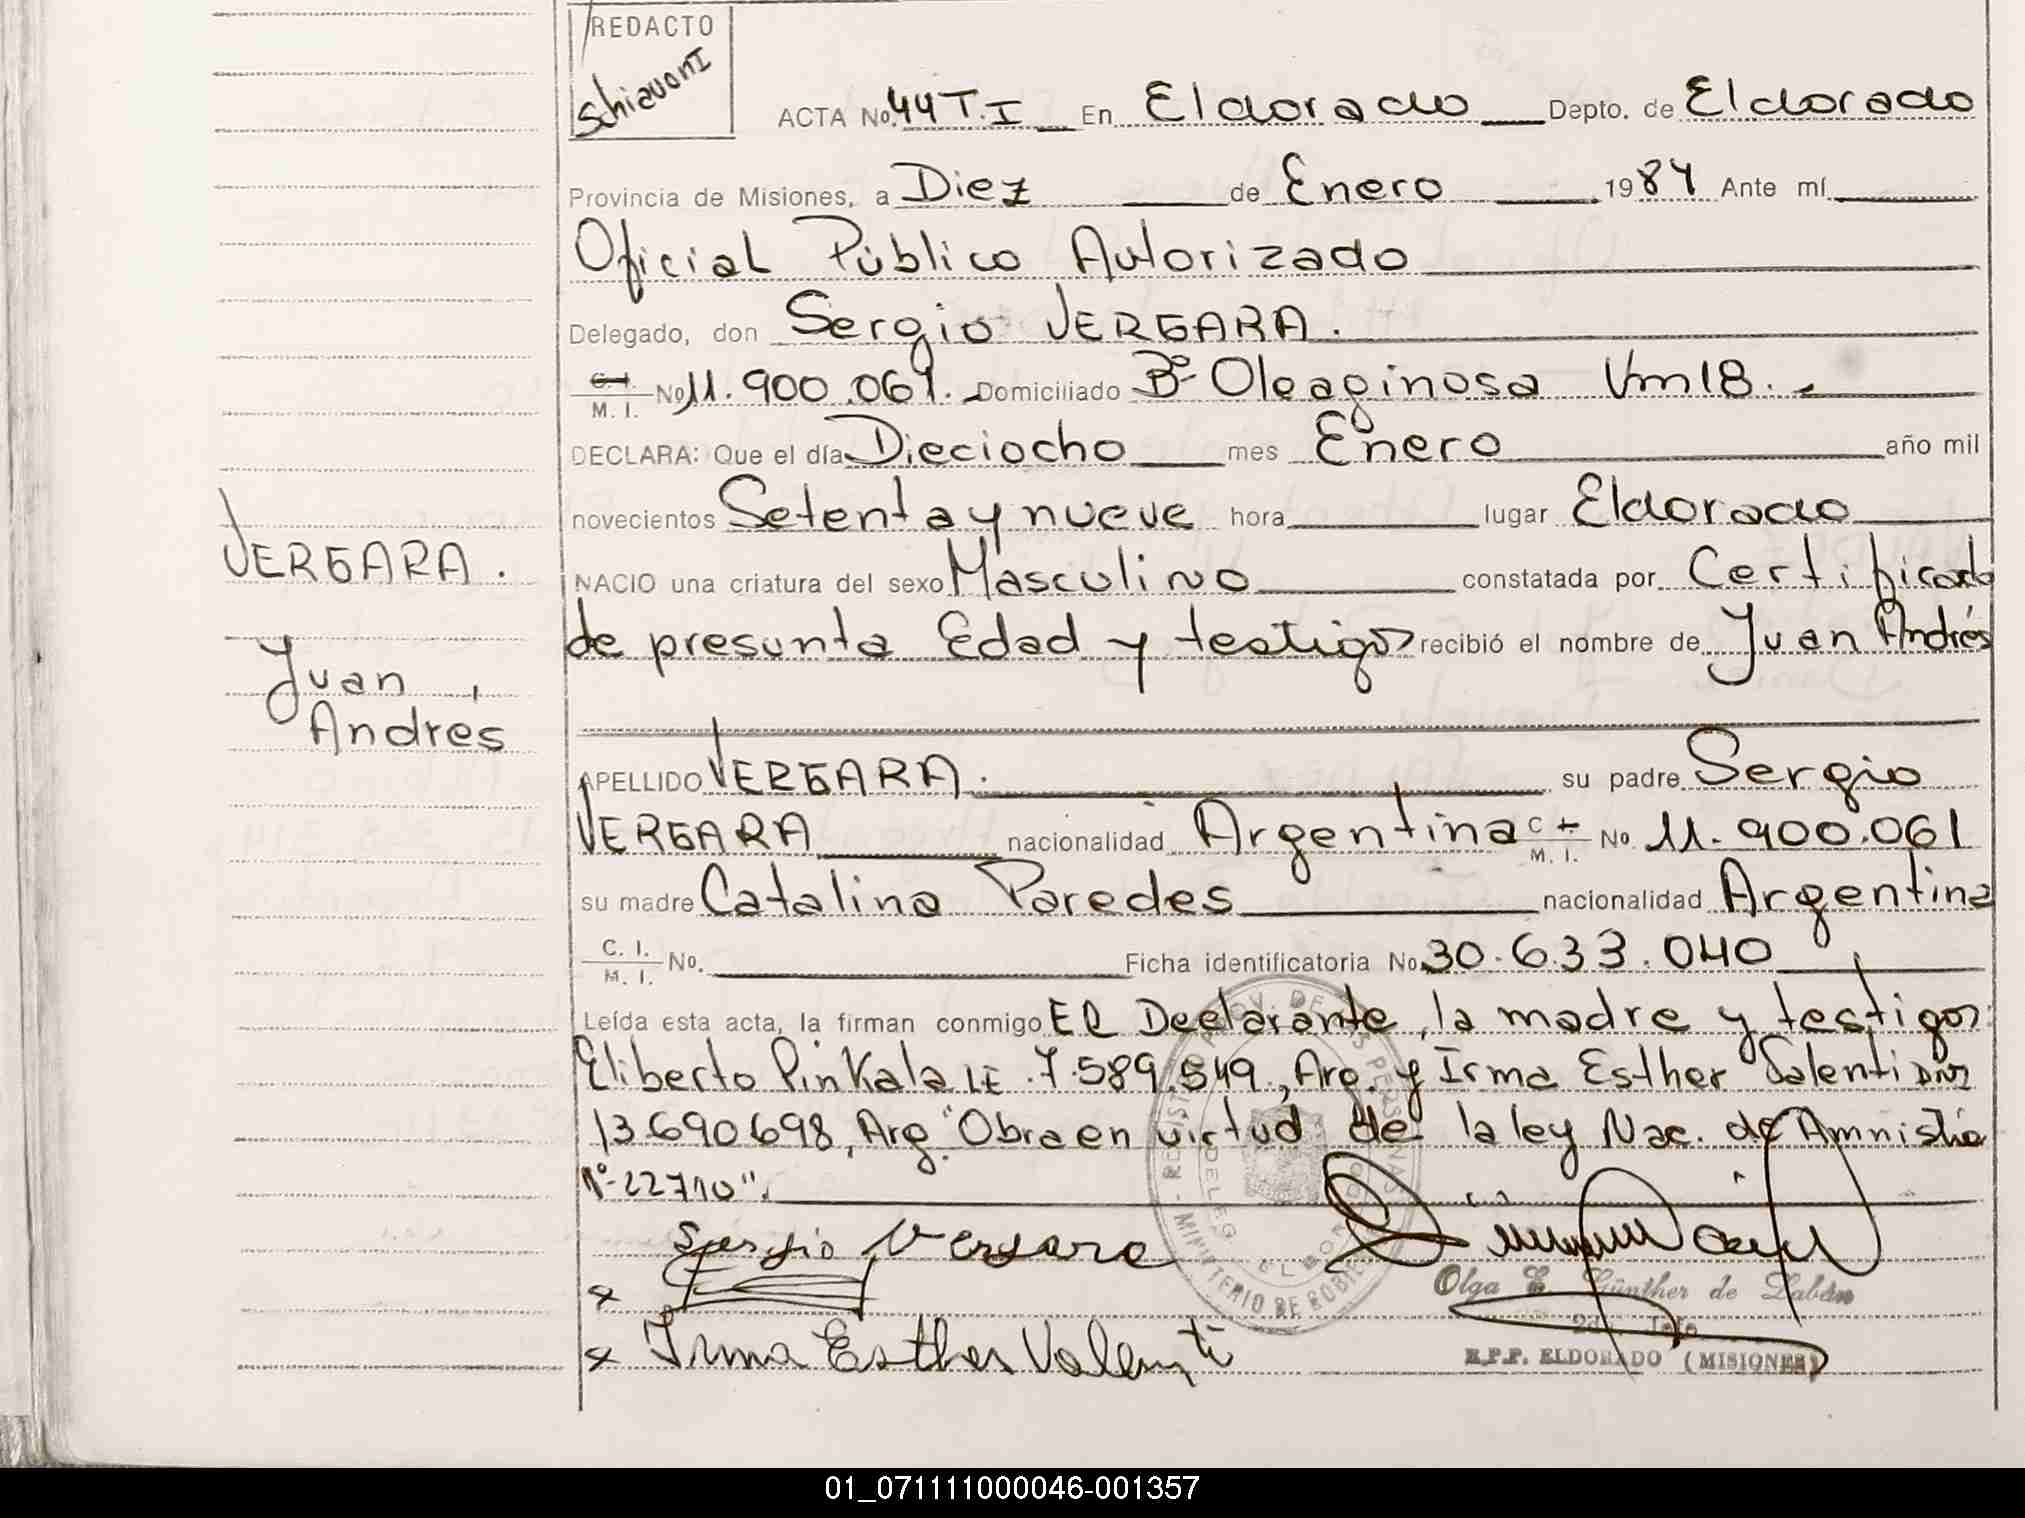 REDACTO
Schiavoni
ACTA No. 44 T. I En Eldorado Depto. de Eldorado
Provincia de Misiones, a Diez de Enero 1984 Ante mí
Oficial Público Autorizado
Delegado, don Sergio VERGARA.
C. I. M. I. No 11.900.061. Domiciliado Bº Oleaginosa Km 18.
DECLARA: Que el día Dieciocho mes Enero año mil
novecientos Setenta y nueve hora lugar Eldorado
VERGARA.
NACIO una criatura del sexo Masculino constatada por Certificado
de presunta Edad y testigos recibió el nombre de Juan Andrés
Juan
Andrés
APELLIDO VERGARA. su padre Sergio
VERGARA nacionalidad Argentina C. I. M. I. No. 11.900.061
su madre Catalina Paredes nacionalidad Argentina
C. I. M. I. No. Ficha identificatoria No 30.633.040
Leída esta acta, la firman conmigo El Declarante, la madre y testigos:
Eliberto Pinkala LE. 7.589.549, Arg. y Irma Esther Valenti DNI
13.690.698, Arg. "Obra en virtud de la ley Nac. de Amnistía
Nº 22710".
REGISTRO PROV. DE LAS PERSONAS
DELEG. ELDORADO
MINISTERIO DE GOBIERNO
Sergio Vergara
Olga E. Günther de Labán
2do Jefe
x
x Irma Esther Valenti
R.P.P. ELDORADO (MISIONES)
01_071111000046-001357